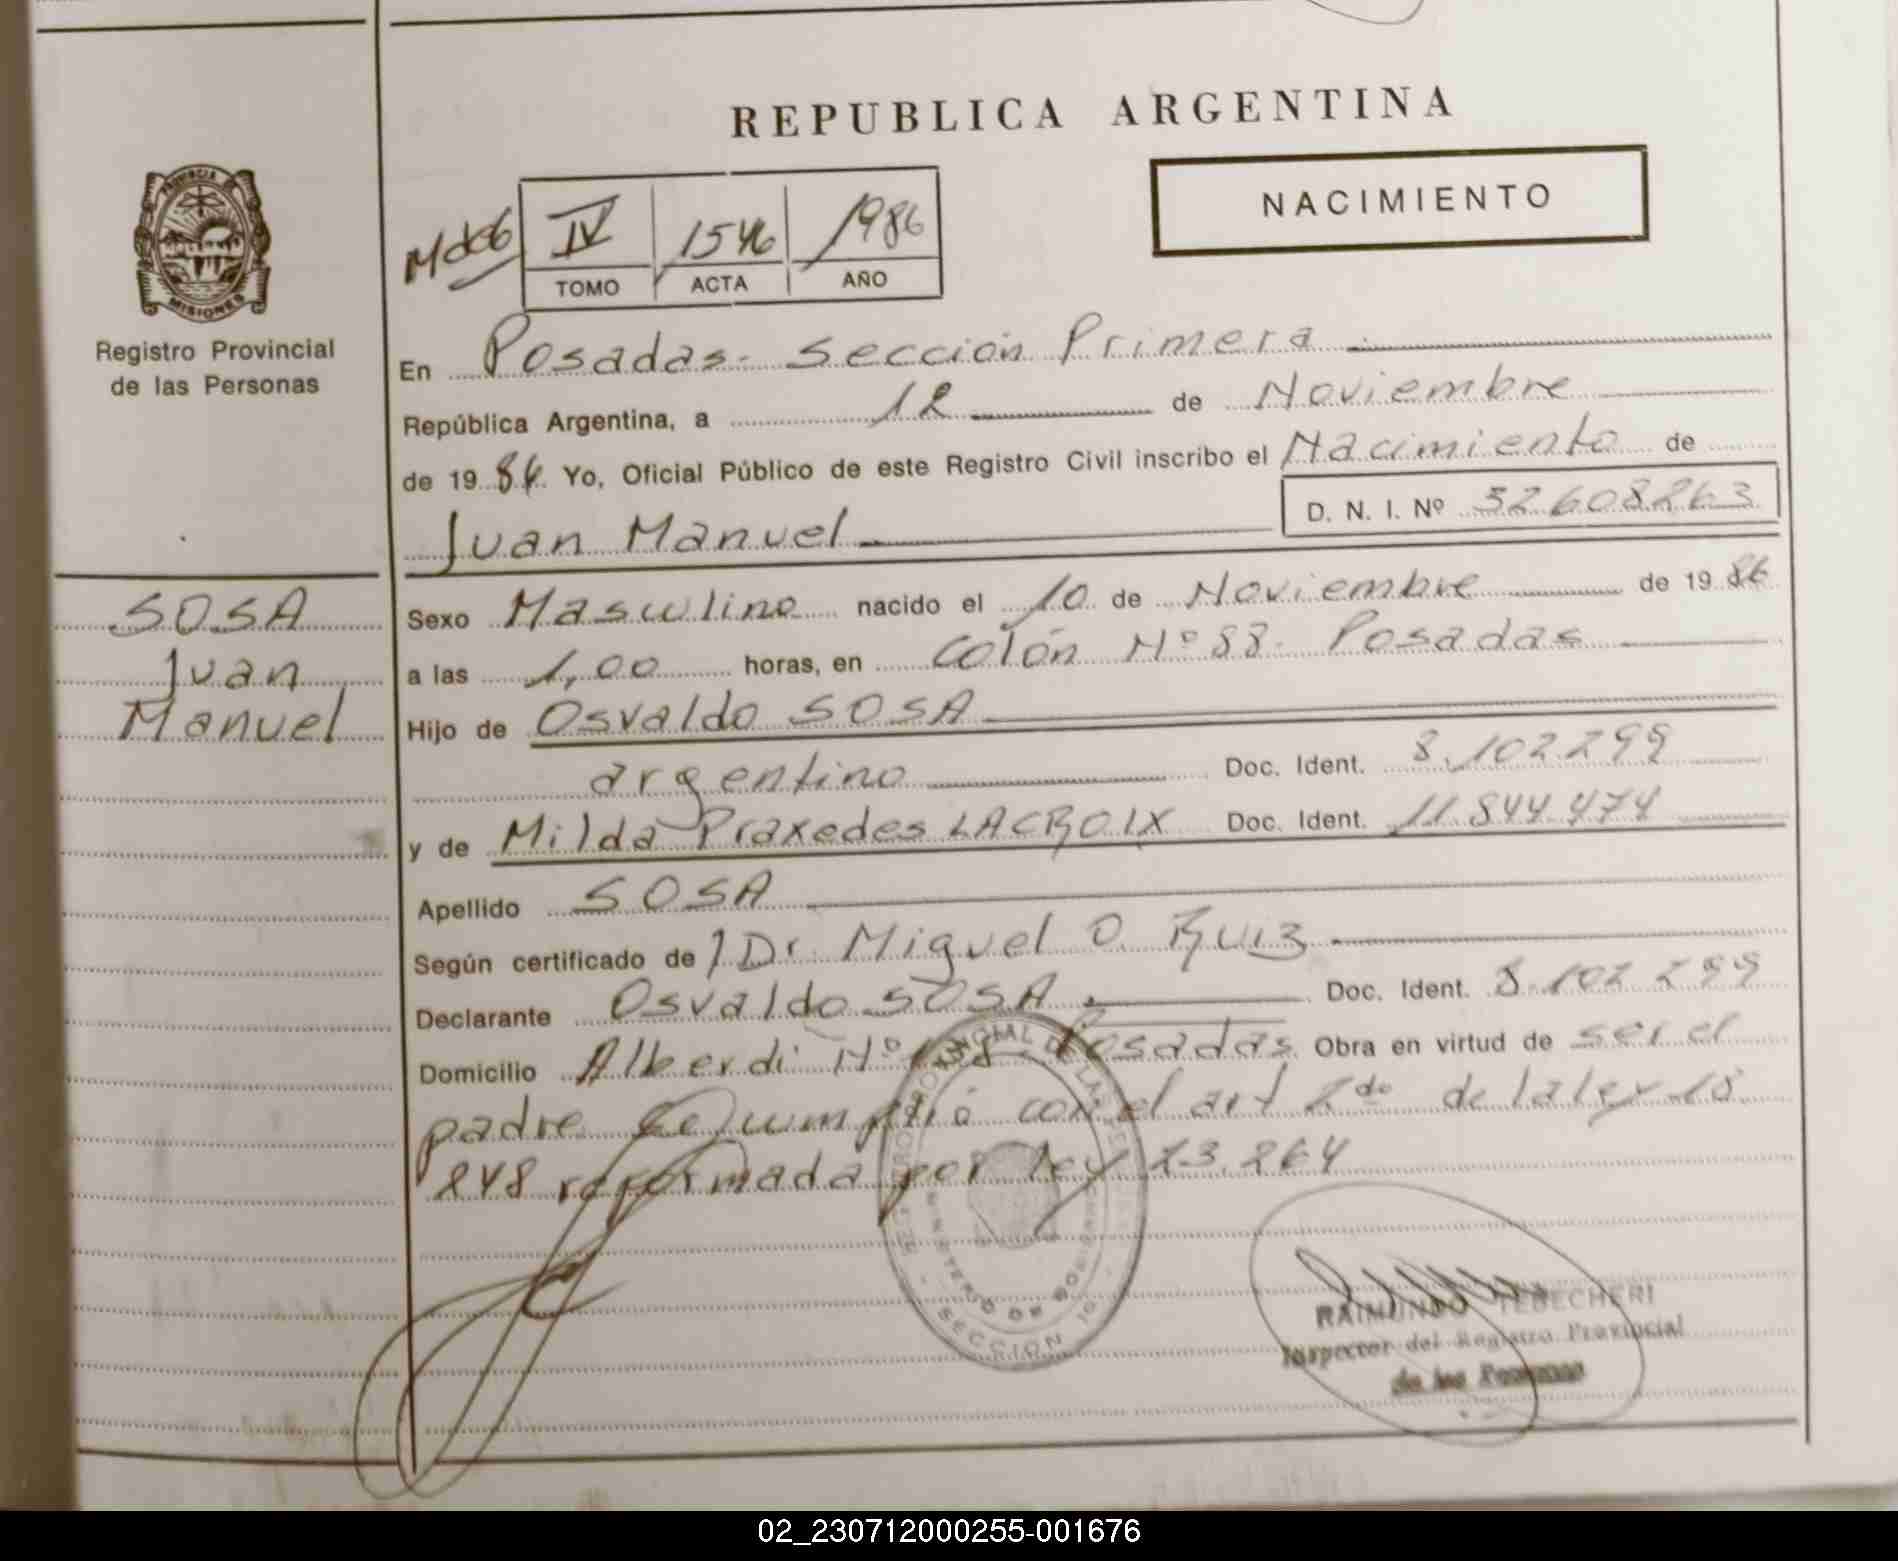 REPUBLICA ARGENTINA
NACIMIENTO
PROVINCIA
MISIONES
Registro Provincial
de las Personas
IV 1546 1986
TOMO ACTA AÑO
En Posadas- Sección Primera
República Argentina, a 12 de Noviembre
de 19 86 Yo, Oficial Público de este Registro Civil inscribo el Nacimiento de
D. N. I. Nº 32608263
Juan Manuel
SOSA
Juan
Manuel
Sexo Masculino nacido el 10 de Noviembre de 19 86
a las 1,00 horas, en Colón Nº 88- Posadas
Hijo de Osvaldo SOSA
argentino Doc. Ident. 8.102299
y de Milda Praxedes LACROIX Doc. Ident. 11.844.474
Apellido SOSA
Según certificado de Dr. Miguel O. Ruiz
Declarante Osvaldo SOSA Doc. Ident. 8.102299
Domicilio Alberdi Nº Posadas Obra en virtud de ser el
padre Se cumplió con el art 2do de la ley 18
248 reformada por ley 23.264
MINISTERIO DE GOBIERNO
SECCION 1º
RAIMUNDO TEBECHERI
Inspector del Registro Provincial
de las Personas
02_230712000255-001676